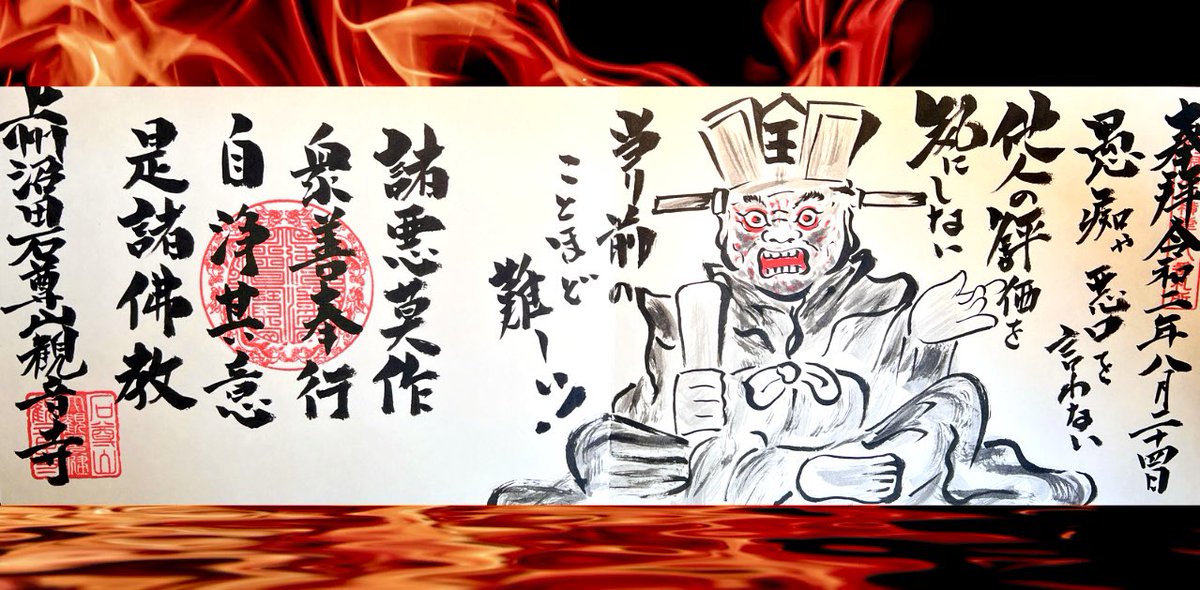 奉拝 令和二年八月二十四日
愚痴や悪口を
言わない
他人の評価を
気にしない
王
当り前の
ことほど
難しい!
諸悪莫作
衆善奉行
自浄其意
是諸佛教
上州沼田石尊山観音寺